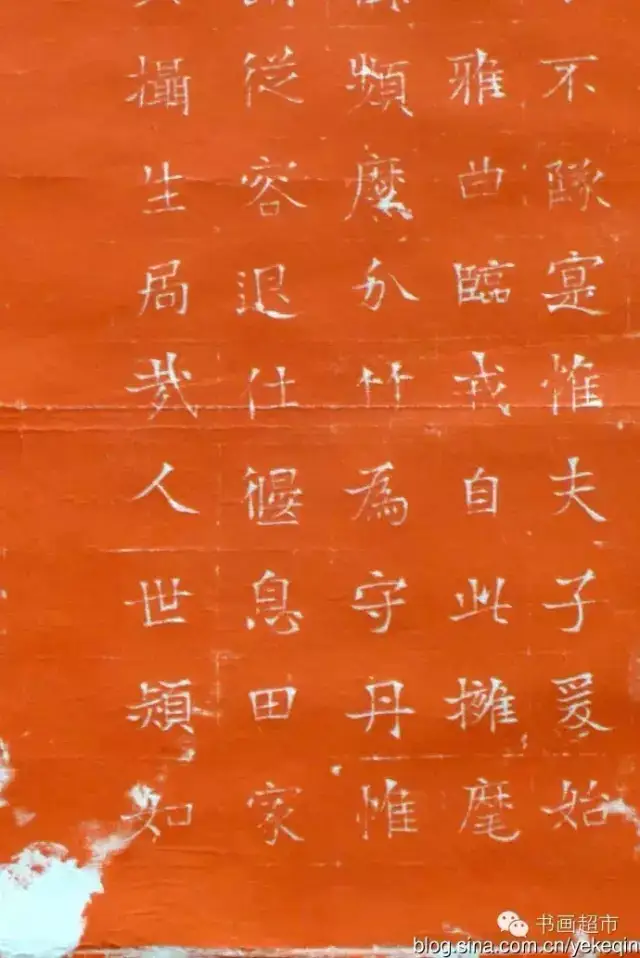 不隊寔惟夫子爰始
雅曲臨戎自此擁
頻分竹為守丹惟
從容退仕偃息田家
攝生局哉人世如
书画超市
blog.sina.com.cn/yekeqin